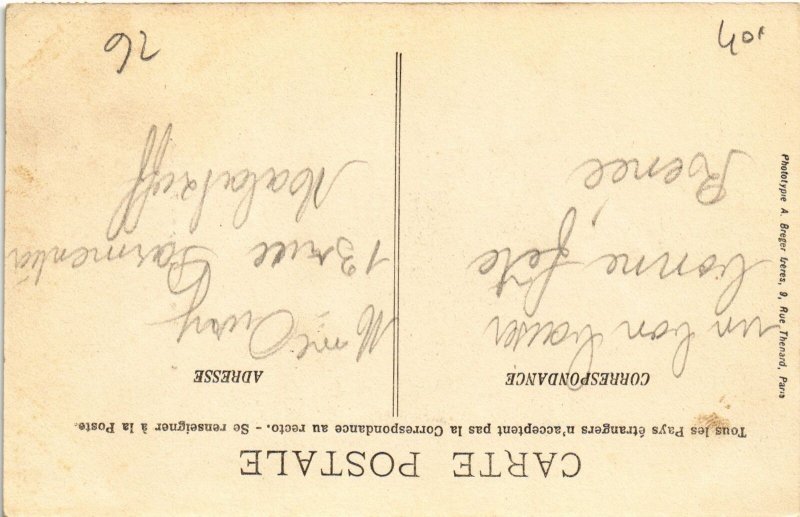 CARTE POSTALE
Tous les Pays étrangers n'acceptent pas la Correspondance au recto. - Se renseigner à la Poste.
CORRESPONDANCE
un bon baiser
bonne fête
Renée
ADRESSE
Mme
13 rue Parmentier
Malakoff
Phototypie A. Breger frères, 9, Rue Thenard, Paris
26
40f